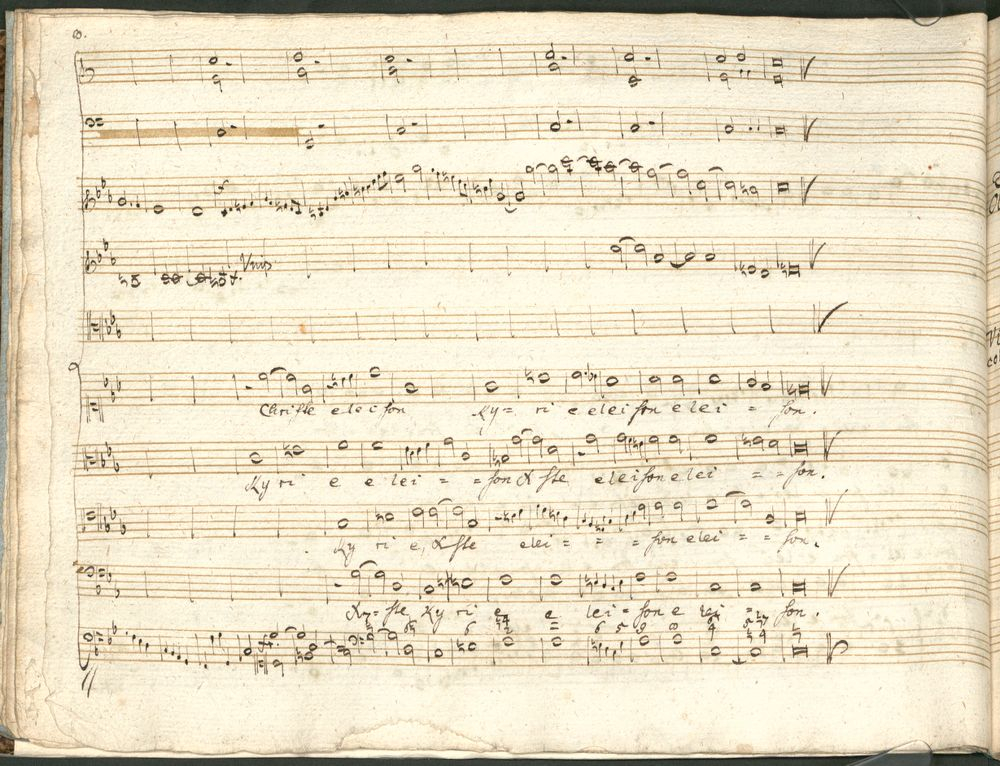 8.
Unis
Christe eleison Ky = ri e eleison elei = son.
Ky ri e e lei = = son Xste eleison elei = = son.
Ky ri e, Xste elei = = = son elei = = son.
Xste Ky ri e e lei = son e lei = son.